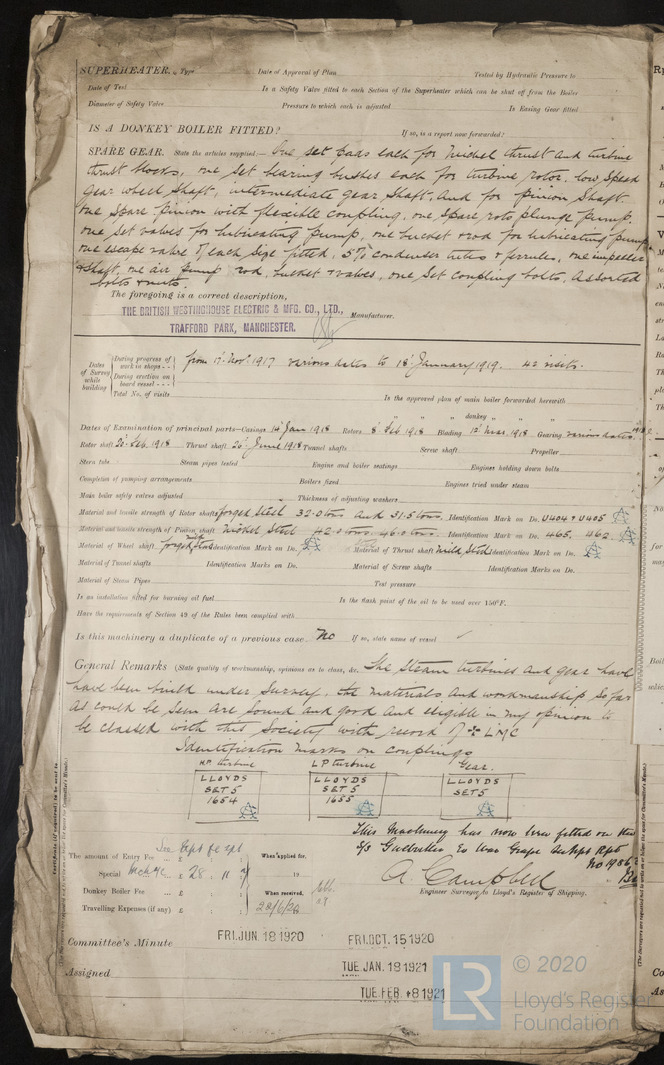 SUPERHEATER. Type Date of Approval of Plan Tested by Hydraulic Pressure to
Date of Test Is a Safety Valve fitted to each Section of the Superheater which can be shut off from the Boiler
Diameter of Safety Valve Pressure to which each is adjusted Is Easing Gear fitted
IS A DONKEY BOILER FITTED? If so, is a report now forwarded?
SPARE GEAR. State the articles supplied:— One set pads each for Michel thrust and turbine
thrust blocks, one set bearing bushes each for turbine rotor, low speed
gear wheel shaft, intermediate gear shaft, and for pinion shaft.
One spare pinion with flexible coupling, one spare roto plunge pump.
one set valves for lubricating pump, one bucket & rod for lubricating pump,
one escape valve of each size fitted, 5% condenser tubes & ferrules, one impeller
& shaft, one air pump rod, bucket & valves, one set coupling bolts, assorted
bolts & nuts.
The foregoing is a correct description,
THE BRITISH WESTINGHOUSE ELECTRIC & MFG. CO., LTD.,
TRAFFORD PARK, MANCHESTER. Manufacturer.
Dates of Survey while building
During progress of work in shops - - from 17 Nov. 1917 various dates to 18 January 1919. 42 visits.
During erection on board vessel - - -
Total No. of visits In the approved plan of main boiler forwarded herewith
" " donkey " " "
Dates of Examination of principal parts—Casings 14 Jan 1918 Rotors 8 Feb 1918 Blading 12 Mar. 1918 Gearing various dates 1918
Rotor shaft 20 Feb. 1918 Thrust shaft 20 June 1918 Tunnel shafts Screw shaft Propeller
Stern tube Steam pipes tested Engine and boiler seatings Engines holding down bolts
Completion of pumping arrangements Boilers fixed Engines tried under steam
Main boiler safety valves adjusted Thickness of adjusting washers
Material and tensile strength of Rotor shaft forged Steel 32.0 tons and 31.5 tons. Identification Mark on Do. U404 & U405
Material and tensile strength of Pinion shaft Nickel Steel 42.0 tons. 46.0 tons. Identification Mark on Do. 465. 462
Material of Wheel shaft forged mild Steel Identification Mark on Do. Material of Thrust shaft Mild Steel Identification Mark on Do.
Material of Tunnel shafts Identification Marks on Do. Material of Screw shafts Identification Marks on Do.
Material of Steam Pipes Test pressure
Is an installation fitted for burning oil fuel Is the flash point of the oil to be used over 150°F.
Have the requirements of Section 49 of the Rules been complied with
Is this machinery a duplicate of a previous case No If so, state name of vessel
General Remarks (State quality of workmanship, opinions as to class, &c. The steam turbines and gear have
have been built under survey, the materials and workmanship so far
as could be seen are sound and good and eligible in my opinion to
be classed with this Society with record of ✠ LMC
Identification marks on couplings
H.P. turbine LP turbine Gear.
LLOYDS LLOYDS LLOYDS
SET 5 SET 5 SET 5
1654 1655
This Machinery has now been fitted on the
S/S
No 1986
A. Campbell
Engineer Surveyor to Lloyd's Register of Shipping.
The amount of Entry Fee ... £ : : When applied for,
Special £ 28 : 11 : 19
Donkey Boiler Fee ... £ : : When received,
Travelling Expenses (if any) £ : : 28/6/20
Committee's Minute FRI. JUN. 18 1920 FRI. OCT. 15 1920
Assigned TUE. JAN. 18 1921
TUE. FEB. 8 1921
LR © 2020
Lloyd's Register
Foundation